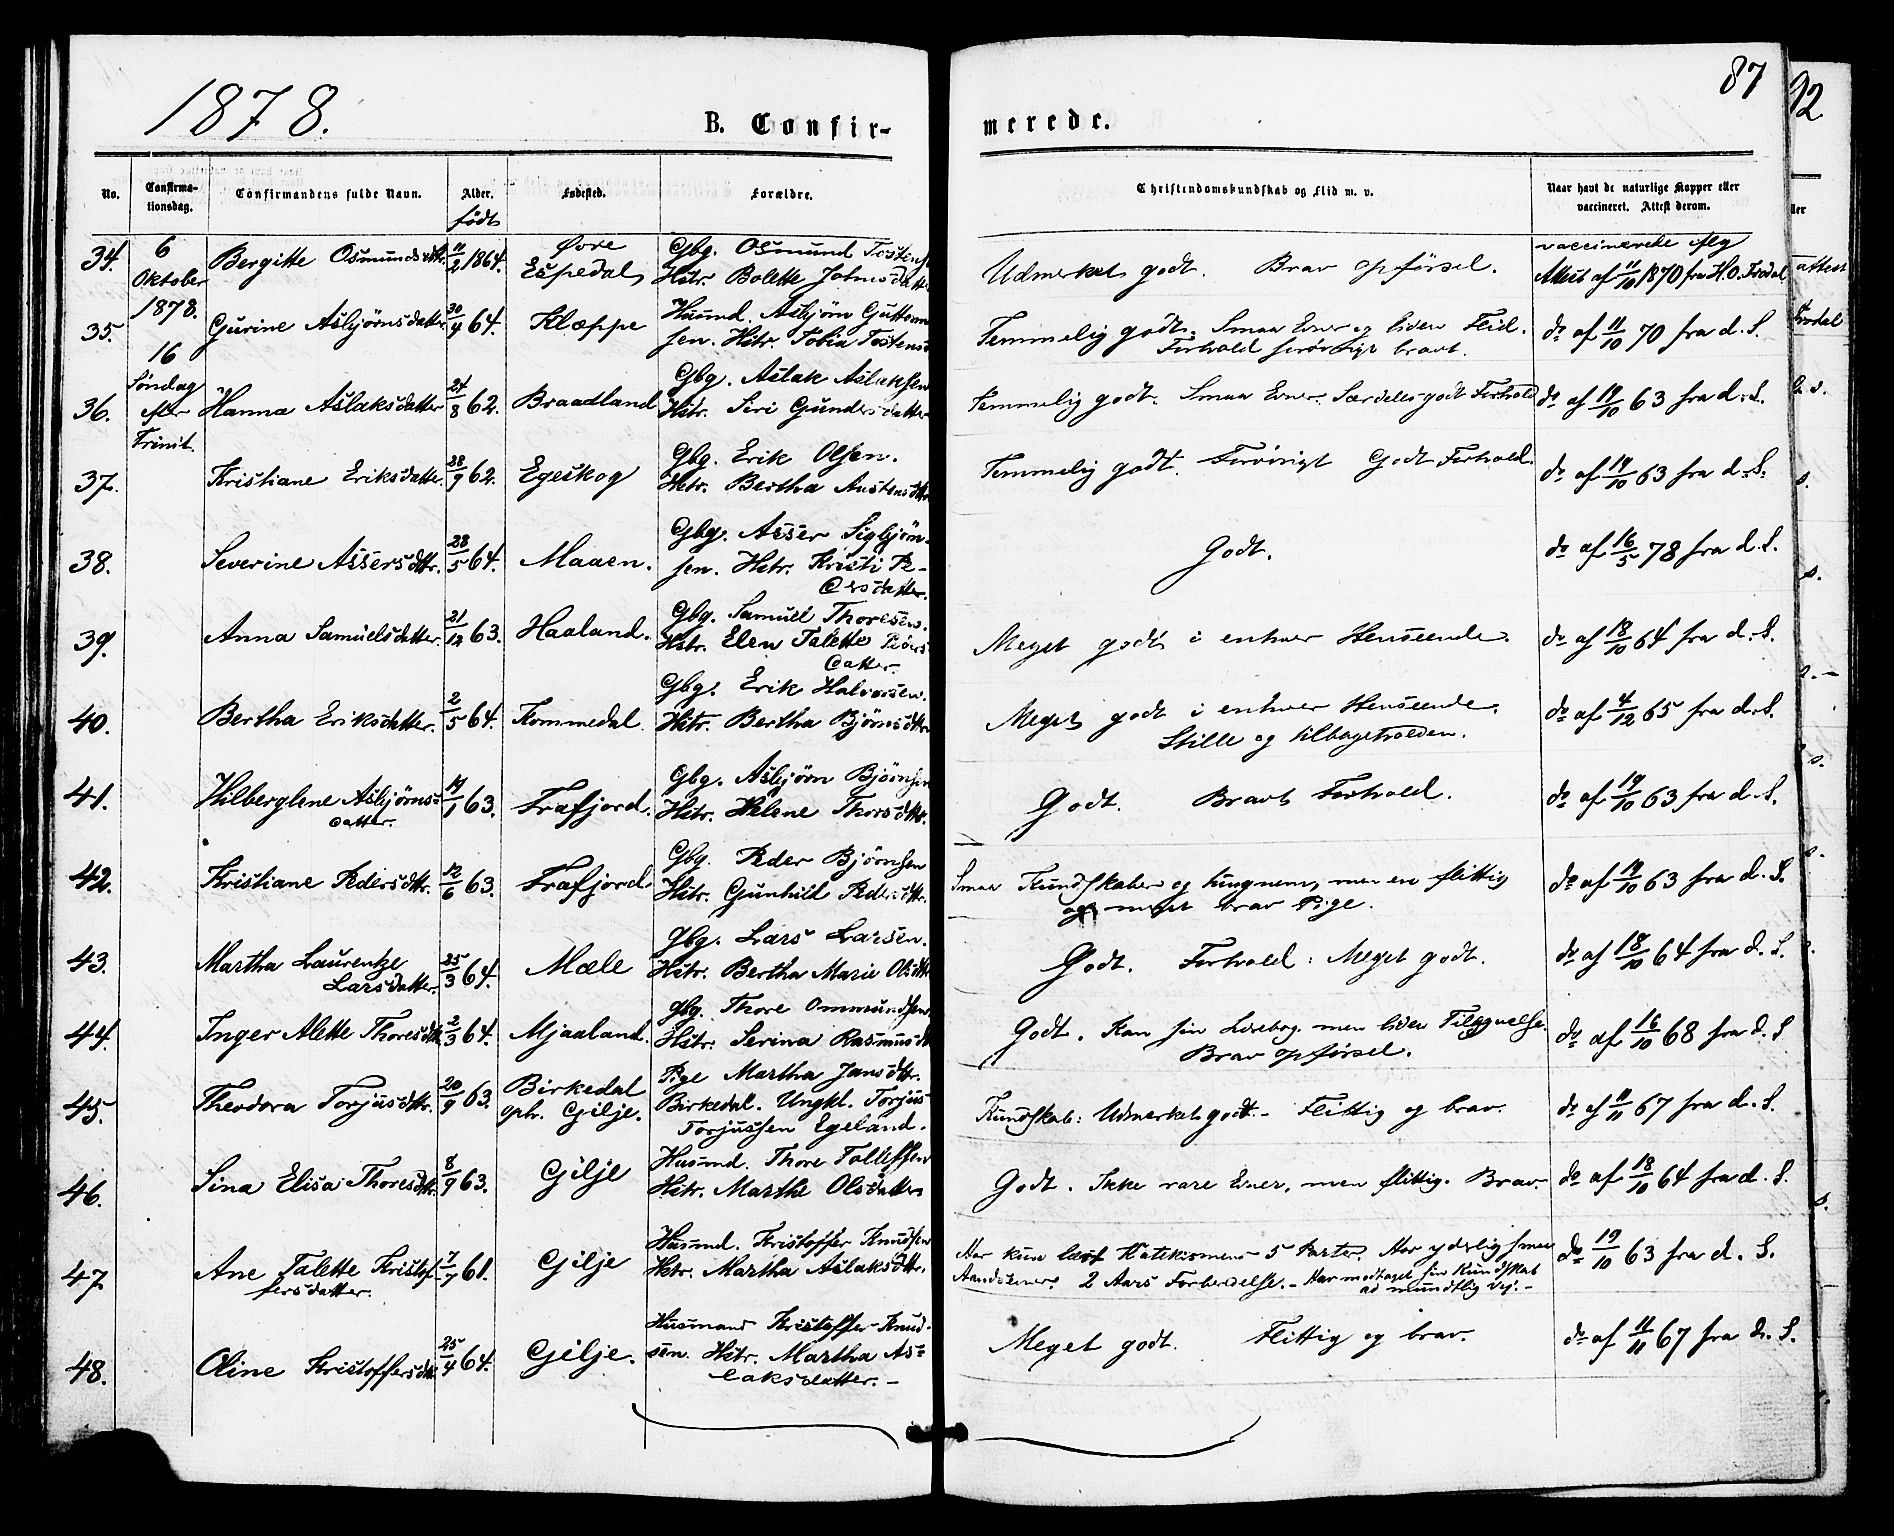 1878.
B. Confir-
merede.
87
92
No.
Confirma-
tionsdag.
Confirmandens fulde Navn.
Alder.
født
Fødested.
Forældre.
Christendomskundskab og Flid m. v.
Naar havt de naturlige Kopper eller
vaccineret. Attest derom.
6
Oktober
1878.
16
Søndag
efter
Trinit.
34. Bergitte Osmundsdtr. 11/2 1864.
Øvre
Espedal
Gbg. Osmund Tostens
Hstr. Bolette Johnsdatter
Udmerket godt. Brav opførsel.
vaccinerede flg
Attest af 11/10 1870 fra H. O. Frødal
35. Gurine Asbjørnsdatter 30/4 64. Klæppe
Husmd. Asbjørn Guttorm
sen. Hstr. Tobia Tostensd
Temmelig godt. Smaa Evner og liden Flid.
Forhold forøvrigt bravt.
do af 11/10 70 fra d. S.
36. Hanna Aslaksdatter 24/8 62. Braadland
Gbg. Aslak Aslaksen
Hstr. Siri Gundersdatter
Temmelig godt. Smaa Evner. Særdeles godt Forhold
do af 19/10 63 fra d. S.
37. Kristiane Eriksdatter. 28/9 62. Egeskog
Gbg. Erik Olsen.
Hstr. Bertha Austensdtr
Temmelig godt. Forøvrigt Godt Forhold.
do af 19/10 63 fra d. S.
38. Severine Assersdtr. 28/5 64. Maaen.
Gbg. Asser Sigbjørn-
sen. Hstr. Kristi Pe-
dersdatter.
Godt.
do af 16/5 78 fra d. S.
39. Anna Samuelsdatter. 21/12 63. Haaland.
Gbg. Samuel Thoresen.
Hstr. Elen Talette Peders
datter.
Meget godt i enhver Henseende.
do af 18/10 64 fra d. S.
40. Bertha Eriksdatter. 2/5 64. Kommedal
Gbg. Erik Halvorsen.
Hstr. Bertha Bjørnsdtr
Meget godt i enhver Henseende.
Stille og tilbageholden.
do af 4/12 65 fra d. S.
41. Hilberglene Asbjørns-
datter. 19/1 63. Frafjord.
Gbg. Asbjørn Bjørnsen
Hstr. Helene Thorsdtr.
Godt. Bravt Forhold.
do af 19/10 63 fra d. S.
42. Kristiane Pedersdtr. 12/6 63. Frafjord.
Gbg. Peder Bjørnsen
Hstr. Gunhild Pedersdtr.
Smaa Kundskaber og tungnem, men en flittig
og meget brav Pige.
do af 19/10 63 fra d. S.
43. Martha Laurentze
Larsdatter. 25/3 64. Mæle
Gbg. Lars Larsen.
Hstr. Bertha Marie Olsdtr
Godt. Forhold: Meget godt.
do af 18/10 64 fra d. S.
44. Inger Alette Thoresdtr 2/3 64. Mjaaland.
Gbg. Thore Ommundsen
Hstr. Serina Rasmusd
Godt. Kan sin Lærebog men liden Tilegnelse.
Brav opførsel.
do af 16/10 68 fra d. S
45. Theodora Torjusdtr. 20/9 63.
Birkedal
oph. Gilje.
Pige Martha Jansdtr.
Birkedal. Ungkl. Torjus
Torjussen Egeland.
Kundskab: Udmerket godt. - Flittig og brav.
do af 11/11 67 fra d. S.
46. Sina Elisa Thoresdtr. 8/9 63. Gilje
Husmd. Thore Tollefsen
Hstr. Marthe Olsdatter
Godt. Ikke rare Evner, men flittig. Brav.
do af 18/10 64 fra d. S.
47. Ane Talette Kristof
fersdatter. 7/7 61. Gilje
Husmd. Kristoffer Knudsen
Hstr. Martha Aslaksdtr.
Har kun læst Katekismens 5 Parter. Har yderlig smaa
Aandsevner. 2 Aars Forberedelse. - Har modtaget sin Kundskab
ad mundtlig vej. -
do 19/10 63 fra d. S.
48. Oline Kristoffersdtr 25/4 64. Gilje.
Husmand Kristoffer Knud-
sen. Hstr. Martha As-
laksdatter. -
Meget godt. Flittig og brav.
do af 11/11 67 fra d. S.